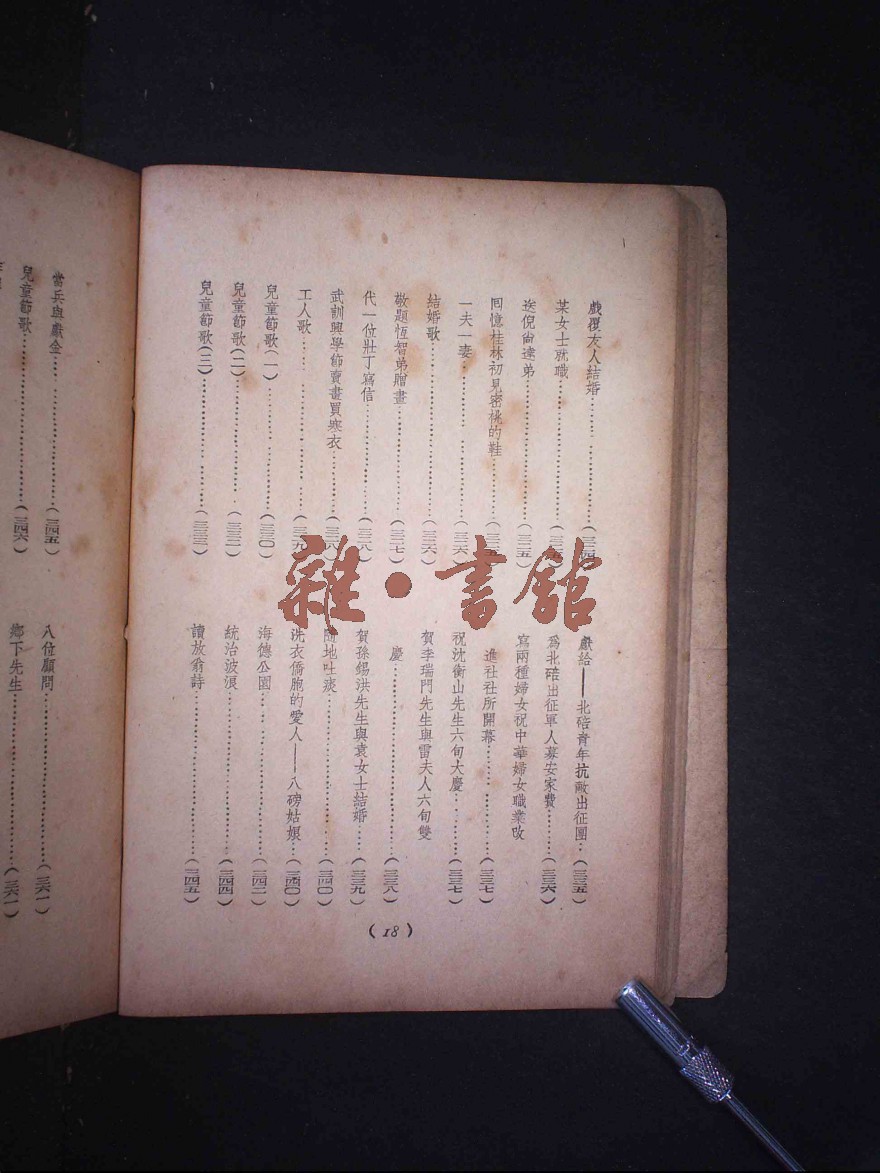 戲覆友人結婚……………………(三二四)
某女士就職……………………
送倪尙達弟……………………(三二五)
囘憶桂林初見密桃的鞋……………
一夫一妻……………………(三二六)
結婚歌……………………(三二六)
敬題恆智弟贈畫……………………(三二七)
代一位壯丁寫信……………………(三二八)
武訓興學節賣畫買寒衣……………(三二八)
工人歌……………………(三二九)
兒童節歌(一)……………………(三三〇)
兒童節歌(二)……………………(三三二)
兒童節歌(三)……………………(三三三)
獻給——北碚靑年抗敵出征團…(三三五)
爲北碚出征軍人募安家費…………(三三六)
寫兩種婦女祝中華婦女職業改
進社社所開幕……………………(三三七)
祝沈衡山先生六旬大慶……………(三三七)
賀李瑞門先生與雷夫人六旬雙
慶……………………(三三八)
賀孫錫洪先生與袁女士結婚………(三三九)
隨地吐痰……………………(三四〇)
洗衣僑胞的愛人——八磅姑娘…(三四〇)
海德公園……………………(三四二)
統治波浪……………………(三四四)
讀放翁詩……………………(三四五)
(18)
當兵與獻金……………………(三四五)
兒童節歌……………………(三四六)
八位顧問……………………(三六一)
鄉下先生……………………(三六一)
雜·書館